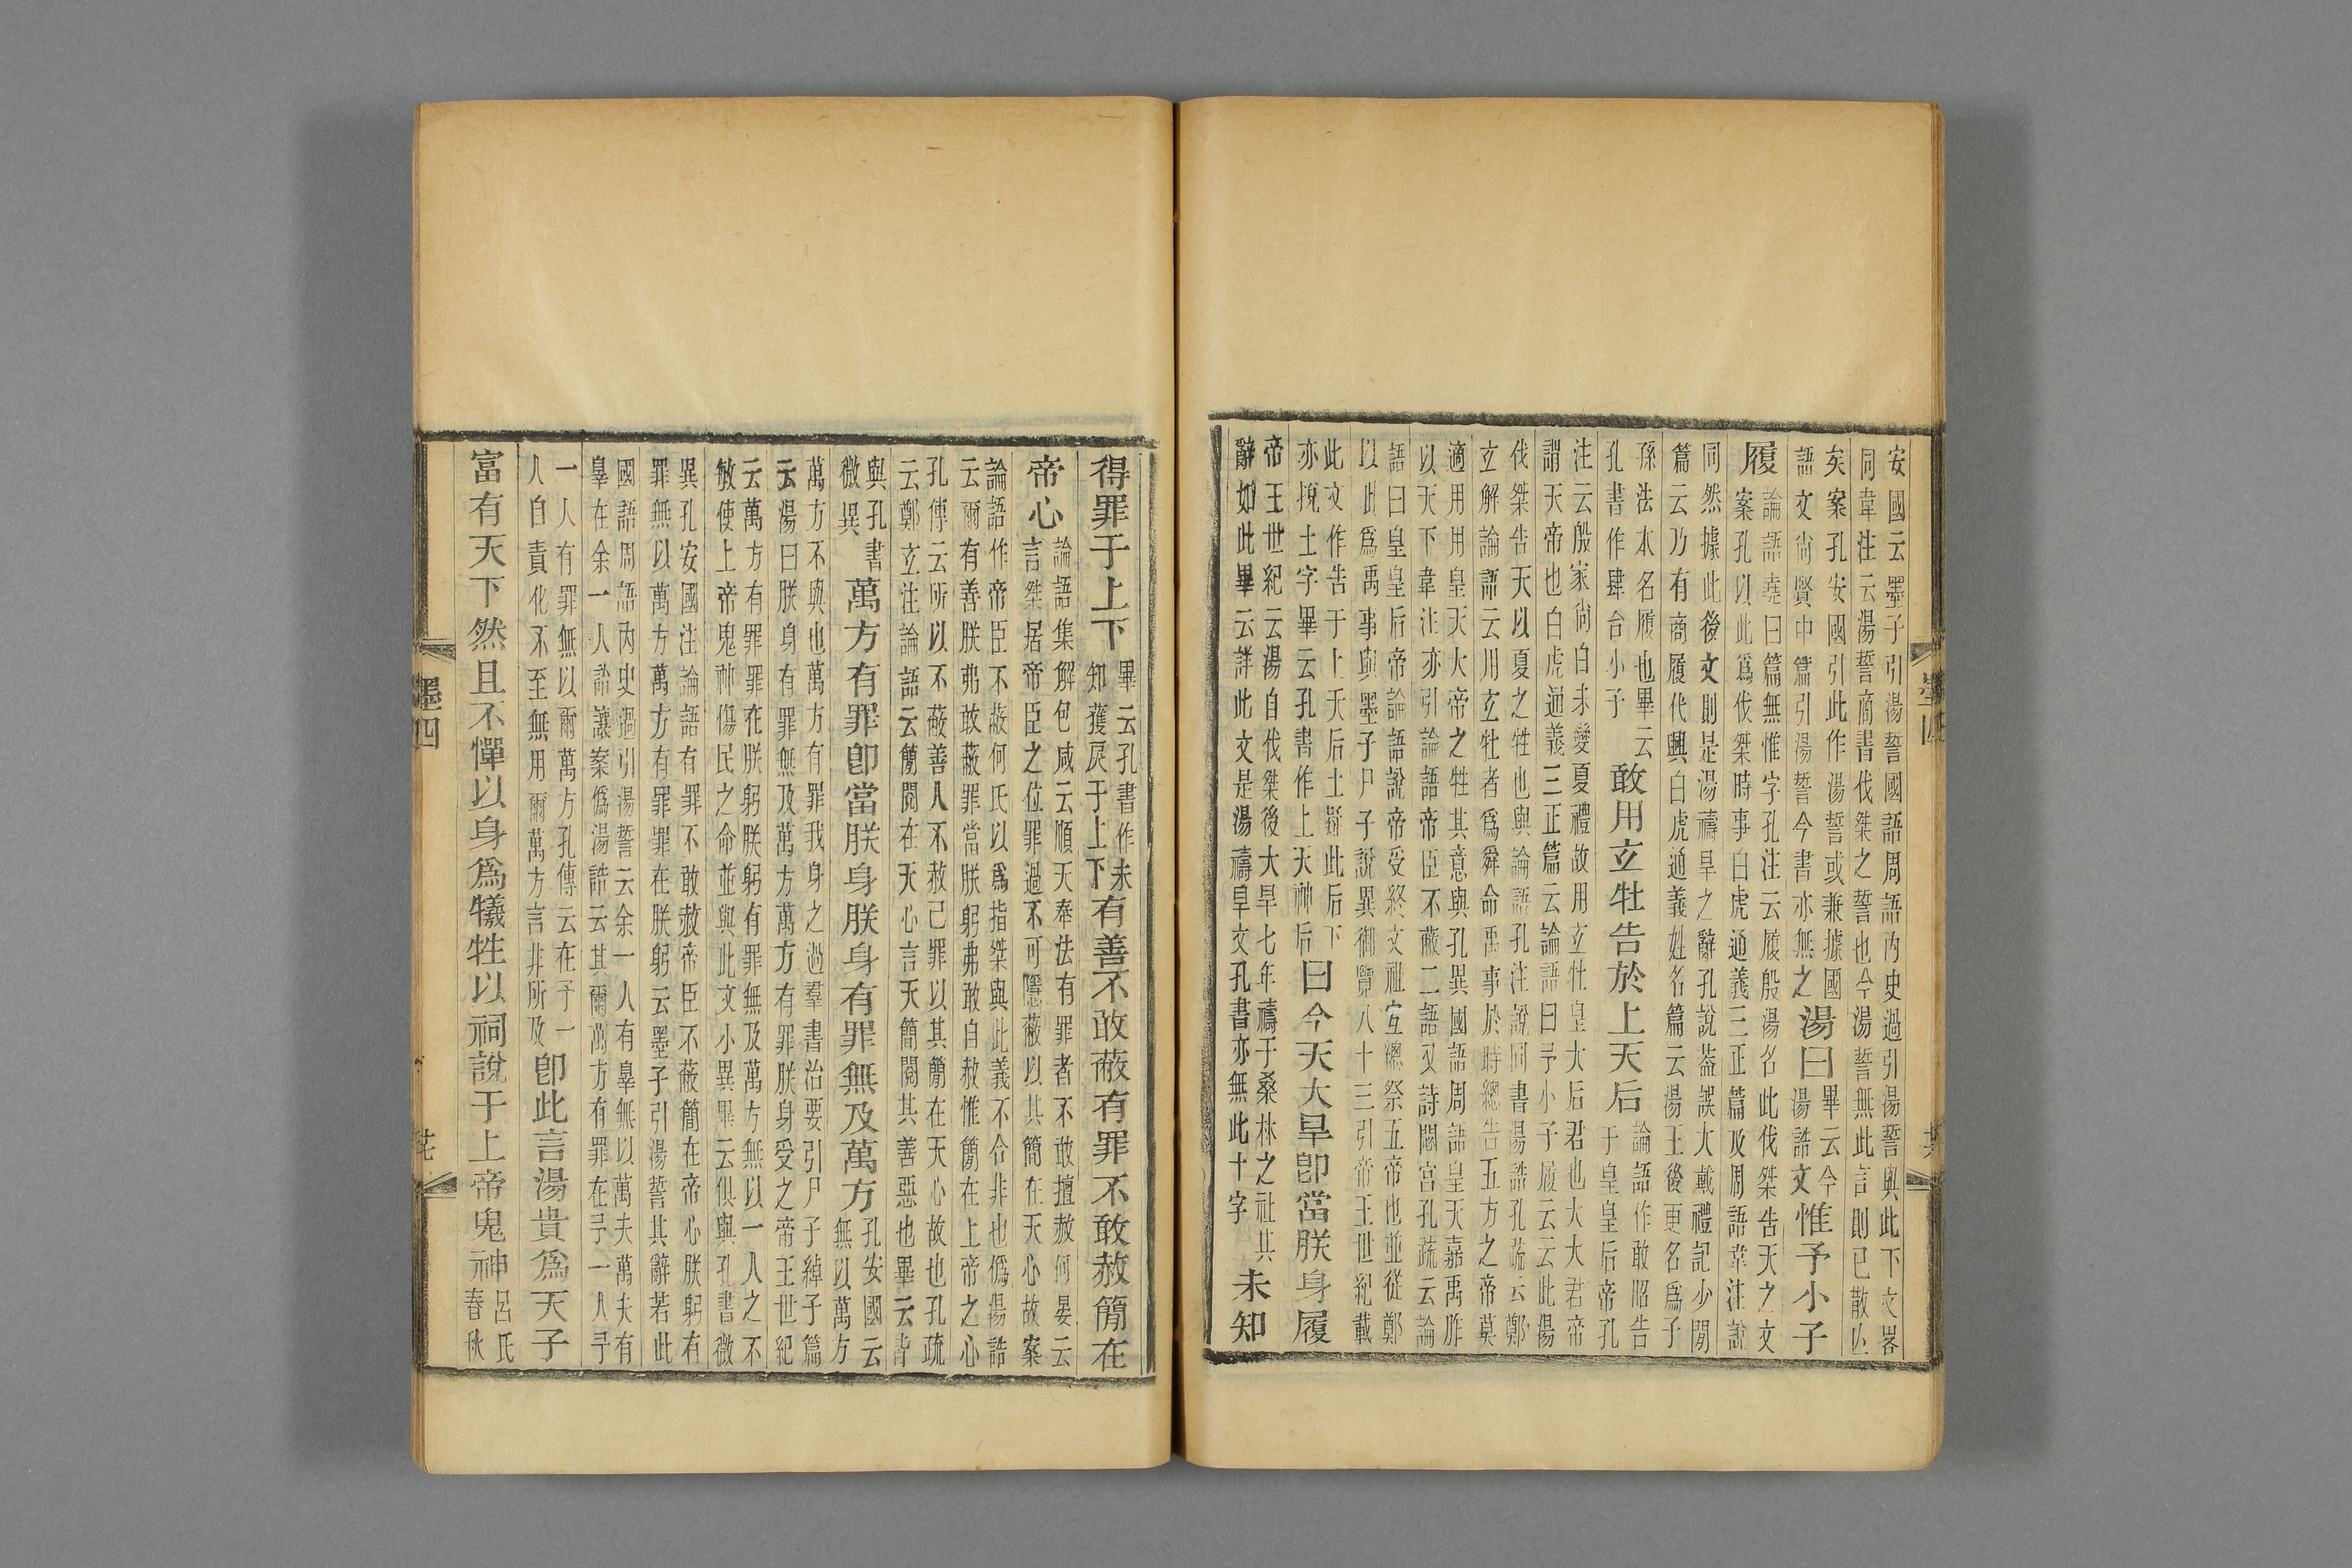 安國云墨子引湯誓國語周語內史過引湯誓與此下文畧
同韋注云湯誓商書伐桀之誓也今湯誓無此言則已散亾
矣案孔安國引此作湯誓或兼據國
語文尙賢中篇引湯誓今書亦無之
湯曰
畢云今
湯誥文
惟予小子
履
論語堯曰篇無惟字孔注云履殷湯名此伐桀告天之文
案孔以此爲伐桀時事白虎通義三正篇及周語韋注說
同然據此後文則是湯禱旱之辭孔說葢誤大戴禮記少閒
篇云乃有商履代興白虎通義姓名篇云湯王後更名爲子
孫法本名履也畢云
孔書作肆台小子
敢用玄牡告於上天后
論語作敢昭告
于皇皇后帝孔
注云殷家尙白未變夏禮故用玄牡皇大后君也大大君帝
謂天帝也白虎通義三正篇云論語曰予小子履云云此湯
伐桀告天以夏之牲也與論語孔注說同書湯誥孔疏云鄭
玄解論語云用玄牡者爲舜命禹事於時總告五方之帝莫
適用用皇天大帝之牲其意與孔異國語周語皇天嘉禹胙
以天下韋注亦引論語帝臣不蔽二語又詩閟宮孔疏云論
語曰皇皇后帝論語說帝受終文祖宜總祭五帝也並從鄭
以此爲禹事與墨子尸子說異御覽八十三引帝王世紀載
此文作告于上天后土疑此后下
亦挩土字畢云孔書作上天神后
曰今天大旱卽當朕身履
帝王世紀云湯自伐桀後大旱七年禱于桑林之社其
辭如此畢云詳此文是湯禱旱文孔書亦無此十字
未知
得罪于上下
畢云孔書作未
知獲戾于上下
有善不敢蔽有罪不敢赦簡在
帝心
論語集解包咸云順天奉法有罪者不敢擅赦何晏云
言桀居帝臣之位罪過不可隱蔽以其簡在天心故案
論語作帝臣不蔽何氏以爲指桀與此義不合非也僞湯誥
云爾有善朕弗敢蔽罪當朕躬弗敢自赦惟簡在上帝之心
孔傳云所以不蔽善人不赦己罪以其簡在天心故也孔疏
云鄭玄注論語云簡閱在天心言天簡閱其善惡也畢云皆
與孔書
微異
萬方有罪卽當朕身朕身有罪無及萬方
孔安國云
無以萬方
萬方不與也萬方有罪我身之過羣書治要引尸子綽子篇
云湯曰朕身有罪無及萬方萬方有罪朕身受之帝王世紀
云萬方有罪罪在朕躬朕躬有罪無及萬方無以一人之不
敏使上帝鬼神傷民之命並與此文小異畢云俱與孔書微
異孔安國注論語有罪不敢赦帝臣不蔽簡在帝心朕躬有
罪無以萬方萬方有罪罪在朕躬云墨子引湯誓其辭若此
國語周語內史過引湯誓云余一人有辠無以萬夫萬夫有
辠在余一人韋注案僞湯誥云其爾萬方有罪在予一人予
一人有罪無以爾萬方孔傳云在予一
人自責化不至無用爾萬方言非所及
卽此言湯貴爲天子
富有天下然且不憚以身爲犧牲以祠說于上帝鬼神
呂氏
春秋
墨四
墨四